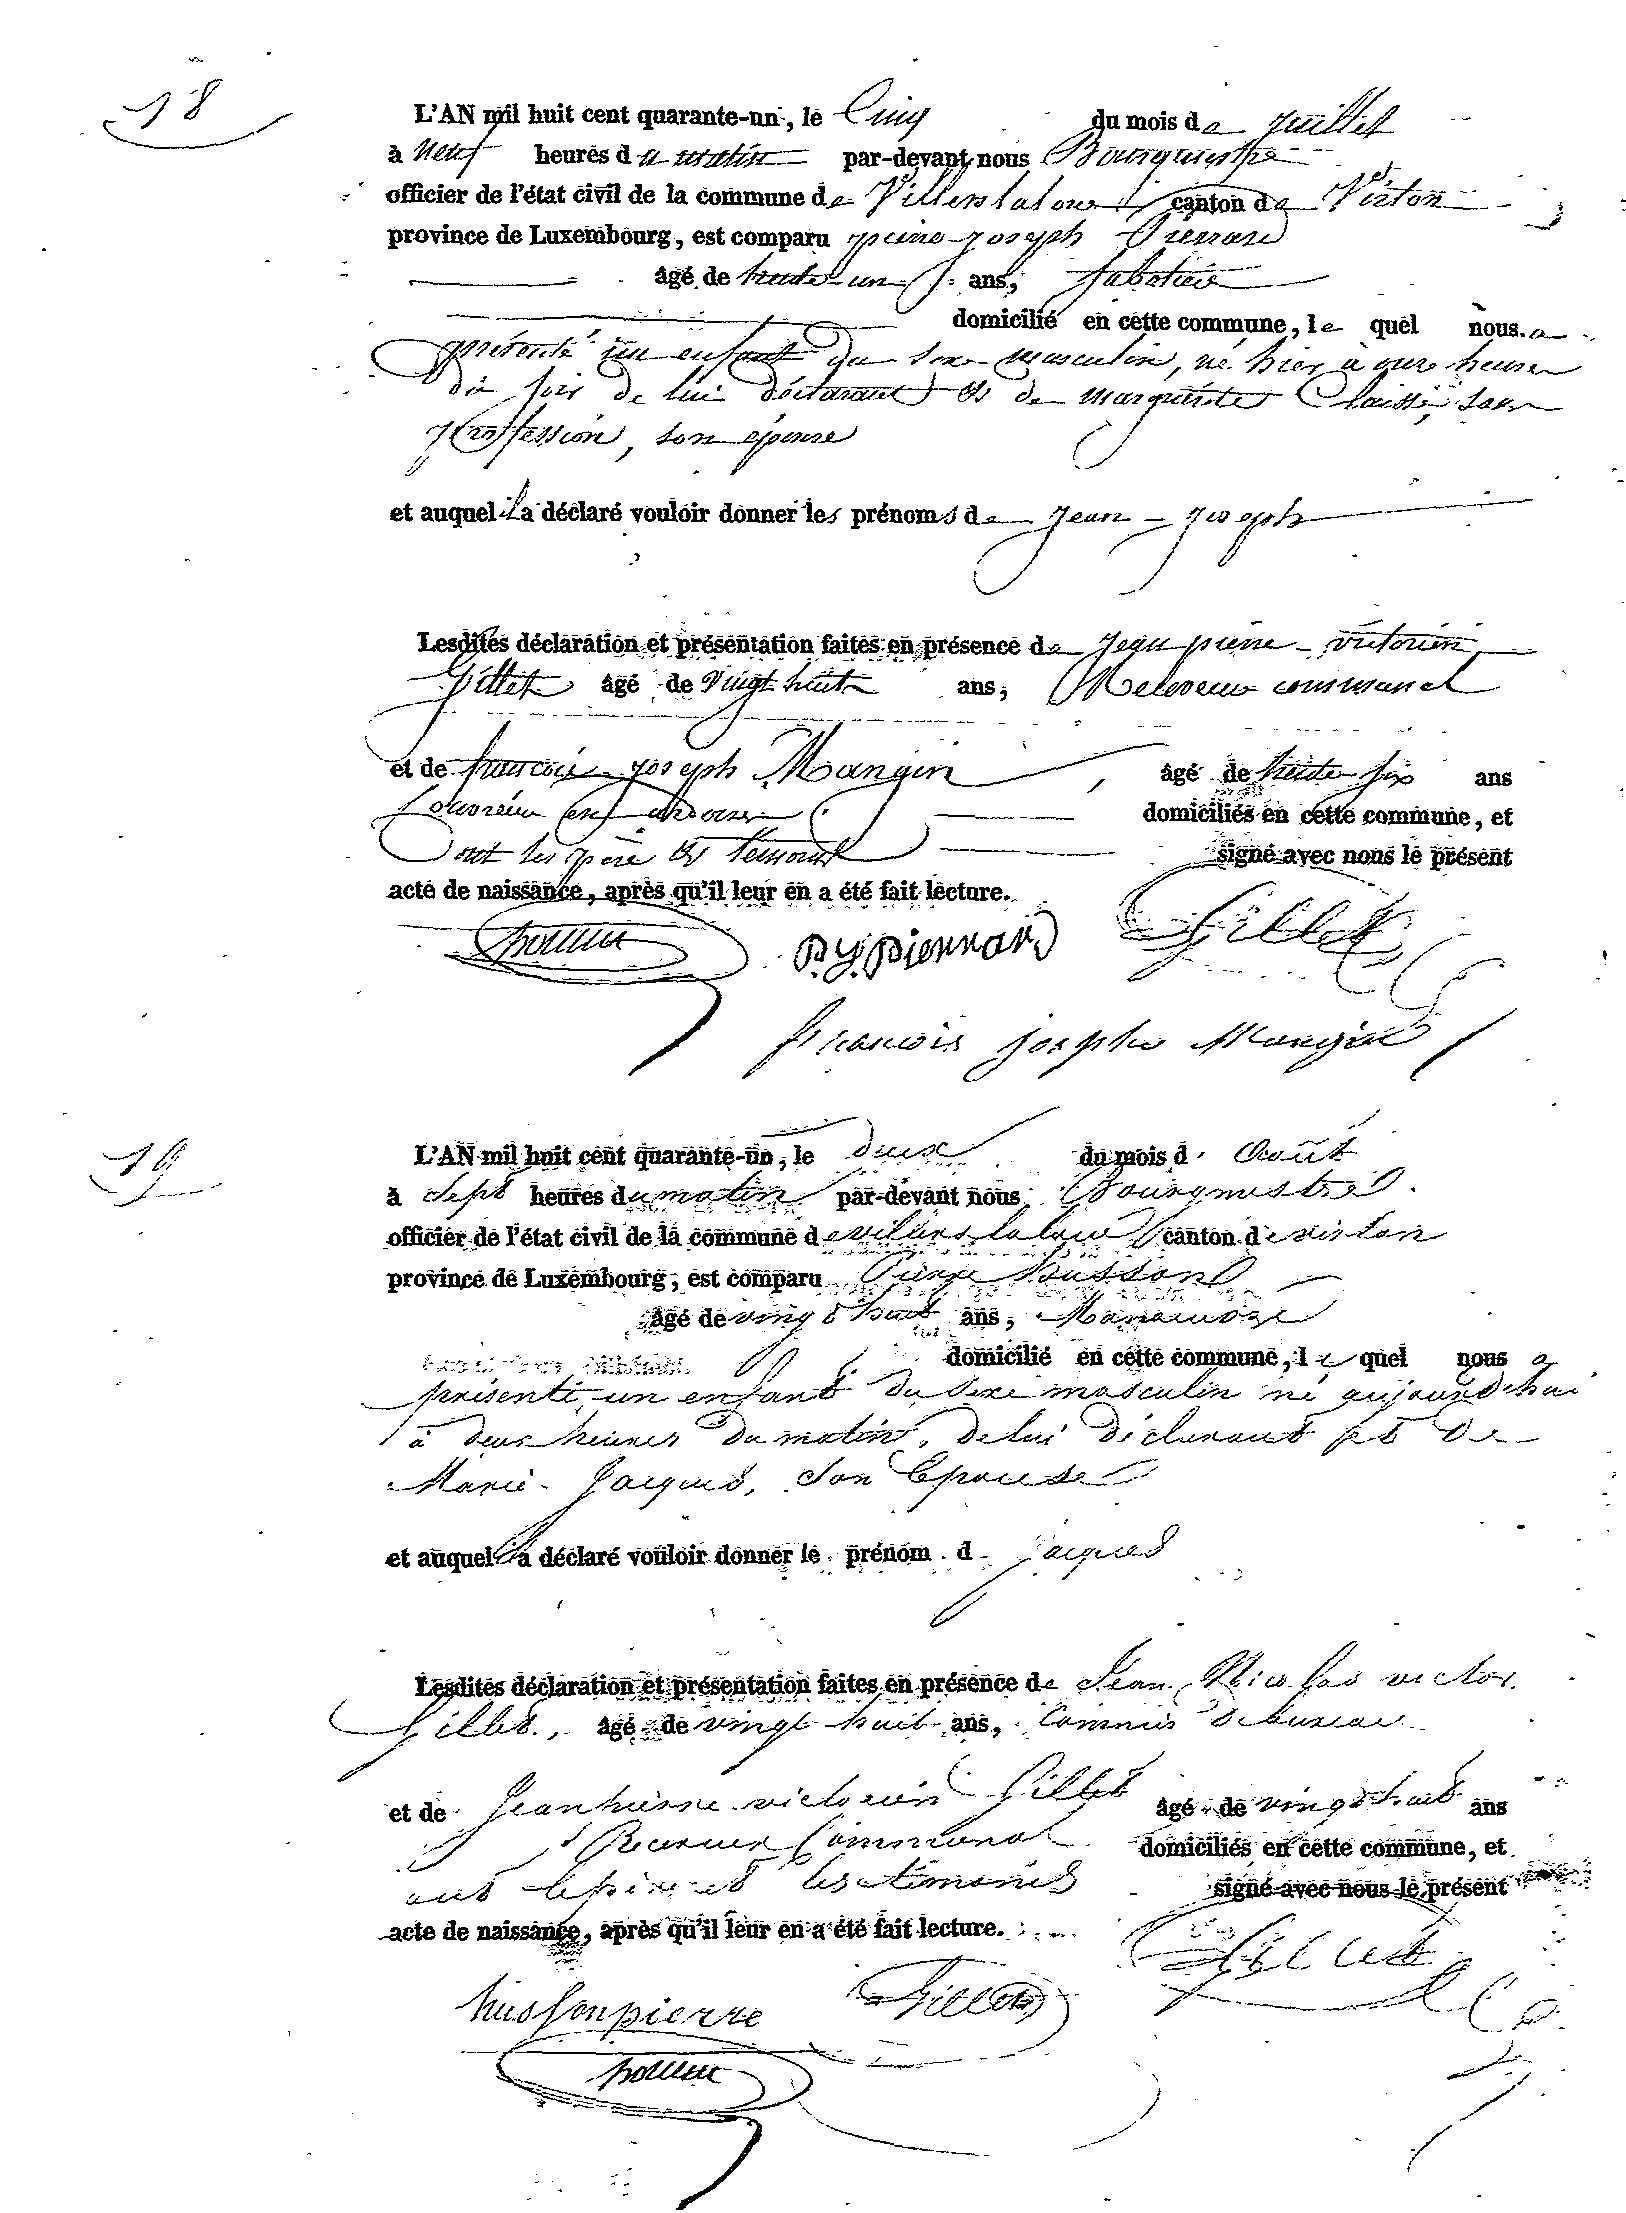 18
L'AN mil huit cent quarante-un, le Cinq du mois de juillet
à neuf heures du matin par-devant nous Bourguestre
officier de l'état civil de la commune de Villerslaloue canton de Virton
province de Luxembourg, est comparu pierre joseph Pierrard
âgé de trente-un ans, sabotier
domicilié en cette commune, le quel nous a
présenté un enfant du sexe masculin, né hier à onze heures
du soir de lui déclarant et de marguerite Claisse, sans
profession, son épouse
et auquel il a déclaré vouloir donner les prénoms de jean-joseph
Lesdites déclaration et présentation faites en présence de jean pierre victorien
Gillet âgé de vingt huit ans, Receveur communal
et de francois joseph Mangin, âgé de trente six ans
domiciliés en cette commune, et
ont les père et témoins signé avec nous le présent
acte de naissance, après qu'il leur en a été fait lecture.
P.J. Pierrard Gillet
francois joseph Mangin
19
L'AN mil huit cent quarante-un, le deux du mois d'Août
à Sept heures du matin par-devant nous Bourgmestre
officier de l'état civil de la commune de villerslaloue canton de virton
province de Luxembourg, est comparu Pierre husson
âgé de vingt huit ans, Manoeuvre
domicilié en cette commune, le quel nous a
présenté un enfant du Sexe masculin né aujourd'hui
à deux heures du matin, de lui déclarant et de
Marie Jacques, Son Epouse
et auquel il a déclaré vouloir donner le prénom de jacques
Lesdites déclaration et présentation faites en présence de Jean Nicolas victor
Gillet, âgé de vingt huit ans, Commis de bureau
et de Jean pierre victorien Gillet âgé de vingt huit ans
Receveur Communal domiciliés en cette commune, et
ont le père et les témoins signé avec nous le présent
acte de naissance, après qu'il leur en a été fait lecture.
husson pierre Gillet Gillet